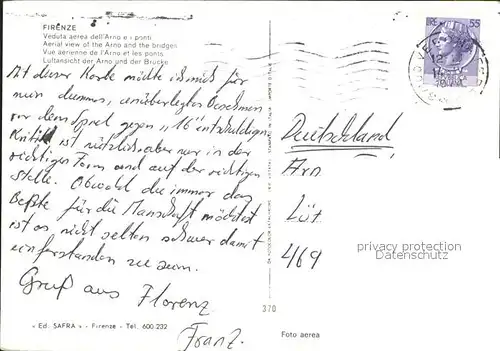 FIRENZE
Veduta aerea dell'Arno e i ponti
Aerial view of the Arno and the bridges
Vue aérienne de l'Arno et les ponts
Luftansicht der Arno und der Brücke
Mit dieser Karte möchte ich mich für
mein dummes, unüberlegtes Benehmen
vor dem Spiel gegen "16" entschuldigen
Kritik ist nützlich aber nur in der
richtigen Form und auf der richtigen
Stelle. Obwohl du immer das
Beßte für die Manschaft möchtest
ist es nicht selten schwer damit
einferstanden zu sein.
Gruß aus Florenz
Franz.
55
Deutschland
Arn
Lüt
4/69
privacy protection
DELCAMPE
370
« Ed. SAFRA » - Firenze - Tel. 600.232
Foto aerea